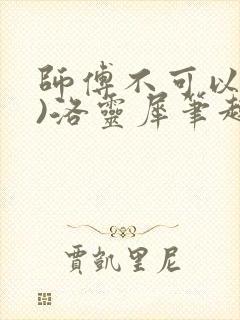 師傅不可以
)洛靈犀筆趣
賈凱里尼